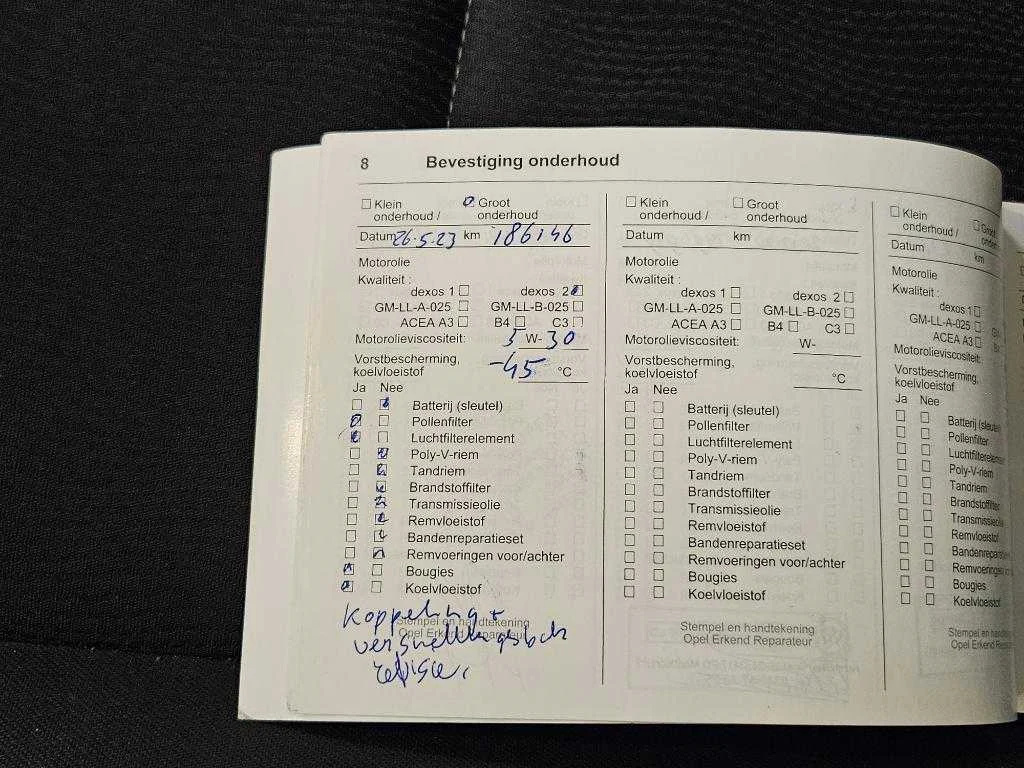 8 Bevestiging onderhoud
Klein onderhoud / Groot onderhoud
Datum 26-5-23 km 186146
Motorolie
Kwaliteit :
dexos 1 dexos 2
GM-LL-A-025 GM-LL-B-025
ACEA A3 B4 C3
Motorolieviscositeit: 5 W- 30
Vorstbescherming,
koelvloeistof -45 °C
Ja Nee
Batterij (sleutel)
Pollenfilter
Luchtfilterelement
Poly-V-riem
Tandriem
Brandstoffilter
Transmissieolie
Remvloeistof
Bandenreparatieset
Remvoeringen voor/achter
Bougies
Koelvloeistof
Stempel en handtekening
Opel Erkend Reparateur
Koppeling +
versnellingsbak
revisie.
Klein onderhoud / Groot onderhoud
Datum km
Motorolie
Kwaliteit :
dexos 1 dexos 2
GM-LL-A-025 GM-LL-B-025
ACEA A3 B4 C3
Motorolieviscositeit: W-
Vorstbescherming,
koelvloeistof °C
Ja Nee
Batterij (sleutel)
Pollenfilter
Luchtfilterelement
Poly-V-riem
Tandriem
Brandstoffilter
Transmissieolie
Remvloeistof
Bandenreparatieset
Remvoeringen voor/achter
Bougies
Koelvloeistof
Stempel en handtekening
Opel Erkend Reparateur
Klein onderhoud /
Datum km
Motorolie
Kwaliteit :
dexos 1
GM-LL-A-025
ACEA A3
Motorolieviscositeit:
Vorstbescherming,
koelvloeistof
Ja Nee
Pollenfilter
Poly-V-riem
Tandriem
Remvloeistof
Bougies
Koelvloeistof
Stempel en
Opel Erkend